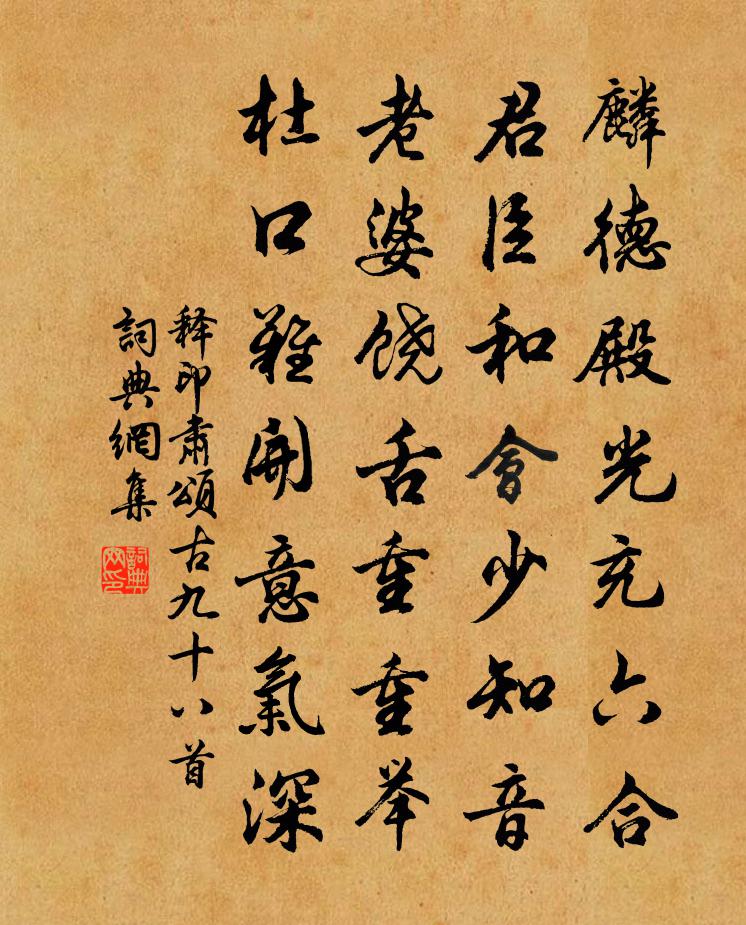 麟德殿光充六合
君臣和會少知音
老婆饶舌重重举
杜口難開意氣深
释印肃頌古九十八首
詞典網集
詞典網印